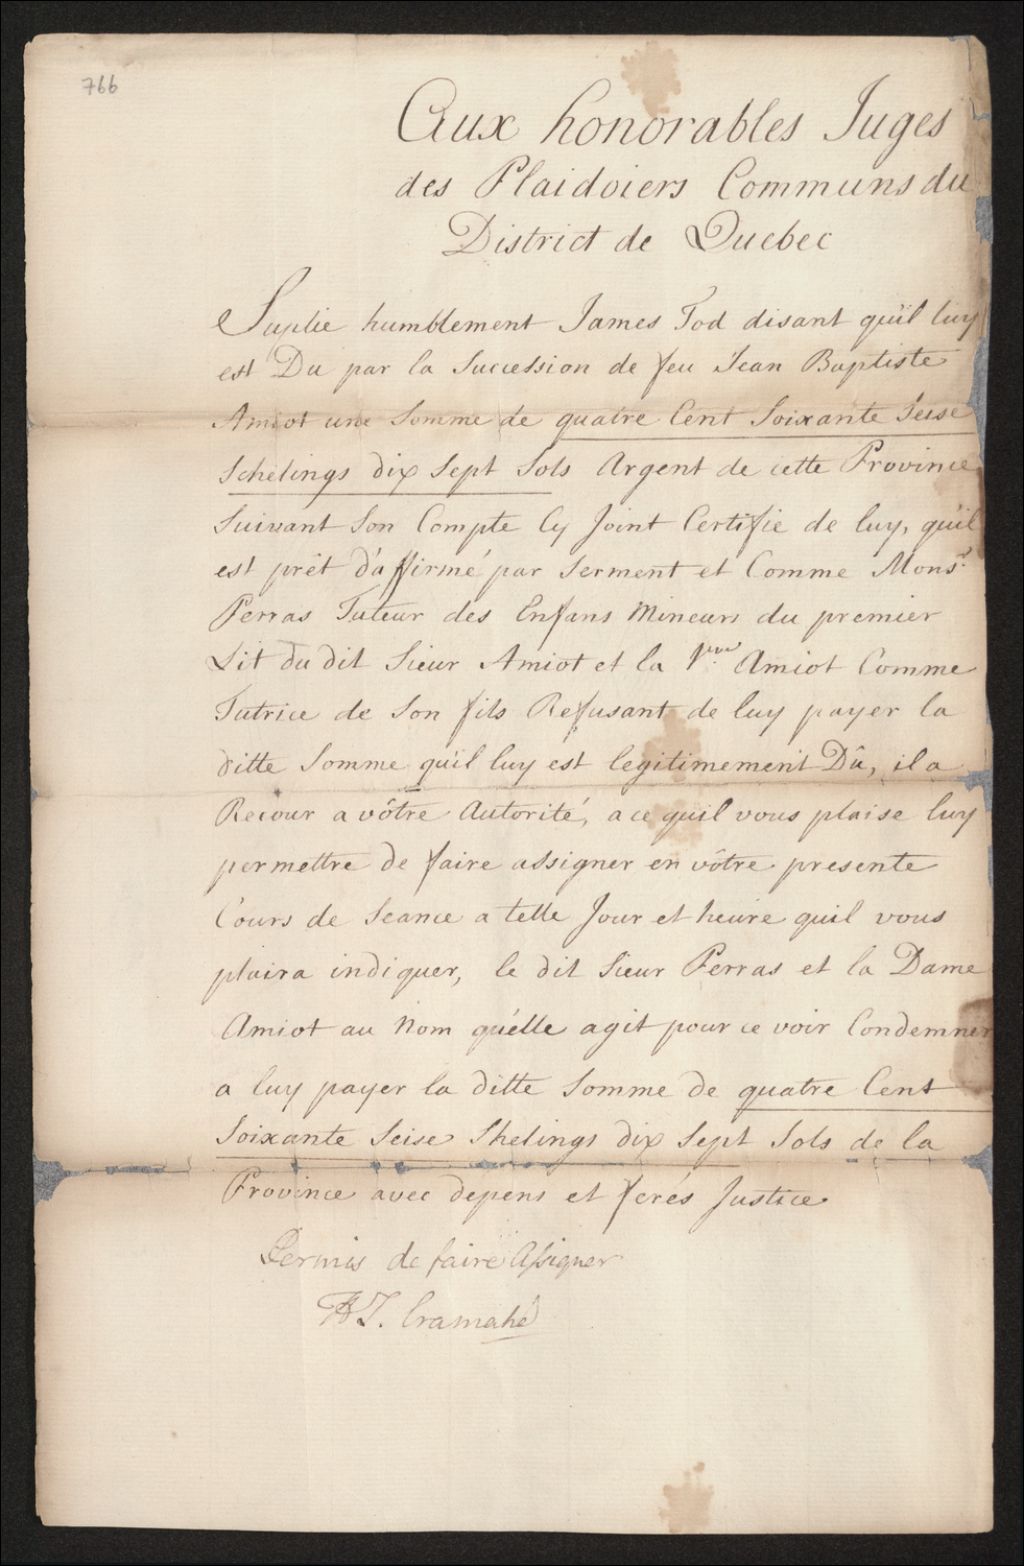 766
Aux honorables Juges
des Plaidoiers Communs du
District de Quebec
Suplie humblement James Tod disant qu'il luy
est Du par la Succession de feu Jean Baptiste
Amiot une Somme de quatre Cent Soixante Seise
Schelings dix Sept Sols Argent de cette Province
Suivant Son Compte Cy Joint Certifie de luy, qu'il
est prêt d'affirmé par Serment et Comme Monsr.
Perras Tuteur des Enfans Mineurs du premier
Lit du dit Sieur Amiot et la Vve. Amiot Comme
Tutrice de Son fils Refusant de luy payer la
ditte Somme qu'il luy est legitimement Dû, il a
Recour a vôtre Autorité, a ce quil vous plaise luy
permettre de faire assigner en vôtre presente
Cours de Seance a telle Jour et heure quil vous
plaira indiquer, le dit Sieur Perras et la Dame
Amiot au Nom qu'elle agit pour ce voir Condemner
a luy payer la ditte Somme de quatre Cent
Soixante Seise Shelings dix Sept Sols de la
Province avec depens et ferés Justice
Permis de faire Assigner
HT. Cramahé